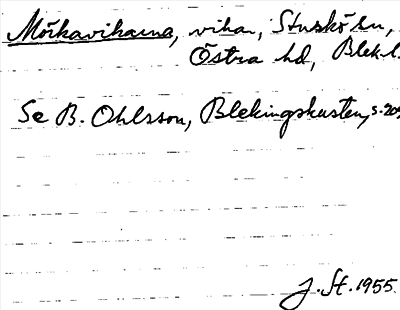 Mörkavikarna, vikar, Sturkö sn,
Östra hd, Blek. l.
Se B. Ohlsson, Blekingskusten, s. 209
J. St. 1955.